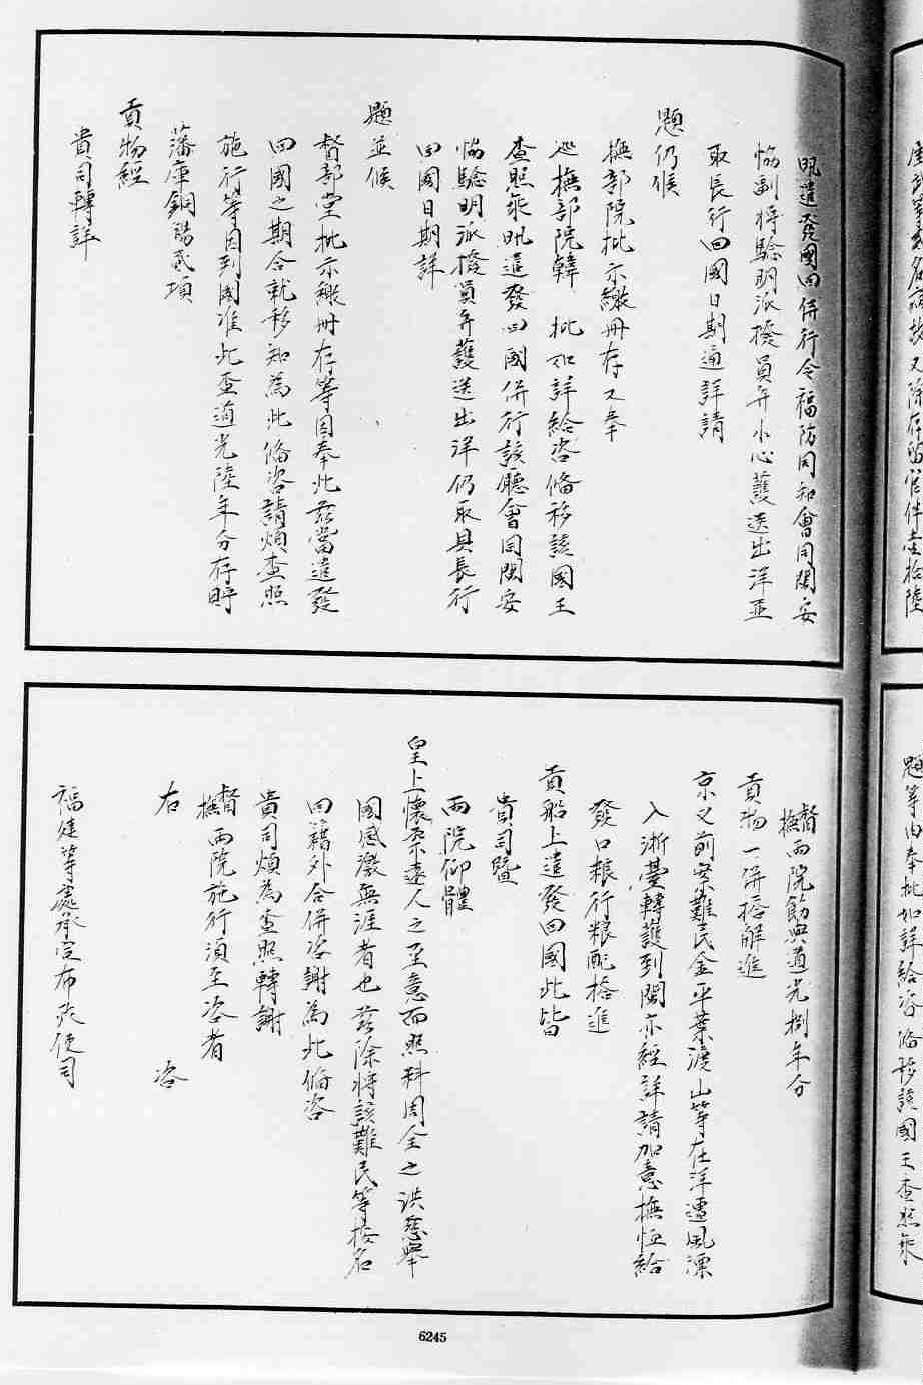 風遣發國回併行令福防同知會同閩安
協副將驗明派撥員弁小心護送出洋並
取長行回國日期通詳請
題仍候
撫部院批示繳冊存又奉
巡撫部院韓 批如詳給咨備移該國王
查照乘風遣發回國併行該廳會同閩安
協驗明派撥員弁護送出洋仍取具長行
回國日期詳
題並候
督部堂批示繳冊存等因奉此茲當遣發
回國之期合就移知為此備咨請煩查照
施行等因到國准此查道光陸年分存貯
藩庫銅錫貳項
貢物經
貴司轉詳
督撫兩院飭與道光捌年分
貢物一併搭解進
京又前案難民金平葉渡山等在洋遭風漂
入浙臺轉護到閩亦經詳請加意撫恤給
發口糧行糧配搭進
貢船上遣發回國此皆
貴司暨
兩院仰體
皇上懷柔遠人之至意而照料周全之洪慈舉
國感激無涯者也茲除將該難民等按名
回籍外合併咨謝為此備咨
貴司煩為查照轉謝
督撫兩院施行須至咨者
右 咨
福建等處承宣布政使司
6245